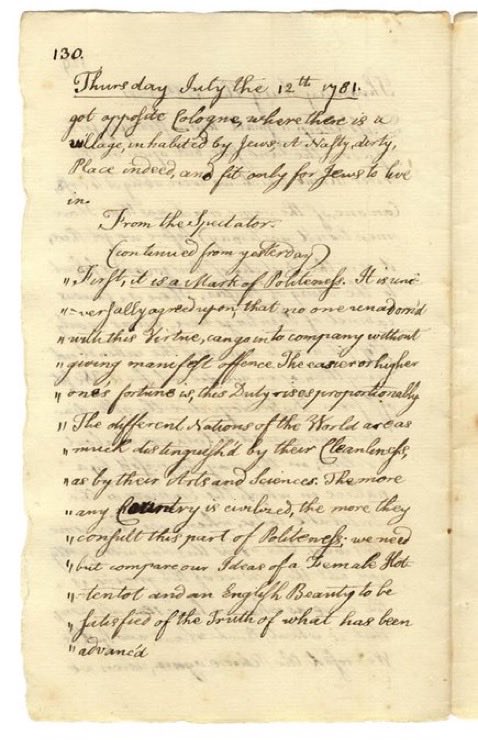 130.
Thursday July the 12th 1781.
got opposite Cologne, where there is a
village, inhabited by Jews; A Nasty, dirty,
Place indeed, and fit only for Jews to live
in.
From the Spectator.
(continued from yesterday)
"First, it is a Mark of Politeness. It is uni-
"-versally agreed upon, that no one unadorn'd
"with this Virtue, can go into company without
"giving manifest offence. The easier or higher
"one's fortune is, this Duty rises proportionally
"The different Nations of the World are as
"much distinguish'd by their Cleanliness,
"as by their Arts and Sciences. The more
"any Country is civilized, the more they
"consult this part of Politeness; we need
"but compare our Ideas of a Female Hot-
"-tentot and an English Beauty to be
"satisfied of the Truth of what has been
"advanc'd